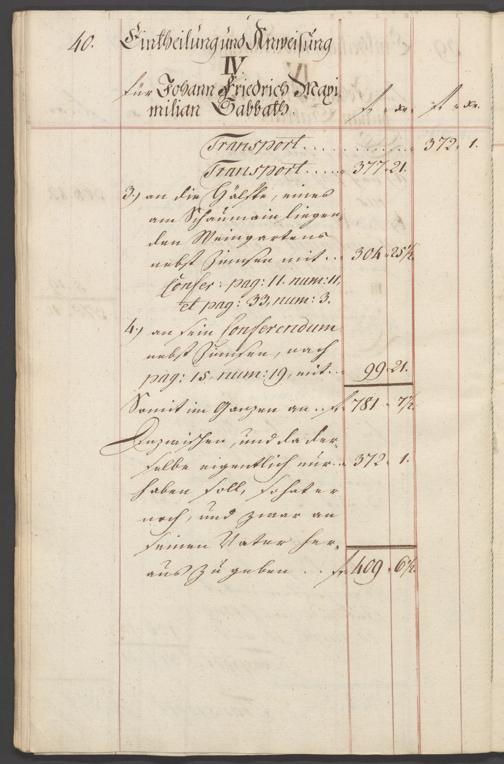 40. Eintheilung und Anweisung
IV
für Johann Friedrich Maxi
milian Sabbath.
f. xr. f. xr.
Transport . . . . . . . . . 372. 1.
Transport . . . . . 377. 21.
3.) an die Hälfte, eines
am Schaumain liegen,
den Weingartens
nebst Zinnsen mit . . 304. 25½
Confer: pag: 11. num: 11,
et pag: 33, num: 3.
4.) an sein Conferendum
nebst Zinnsen, nach
pag: 15. num: 19, mit . . 99. 21.
Somit im Ganzen an . . f. 781. 7½
Inzwischen, und da der,
selbe eigentlich nur . . 372. 1.
haben soll, so hat er
noch, und zwar an
seinen Vater her,
aus zu geben . . . f. 409. 6½